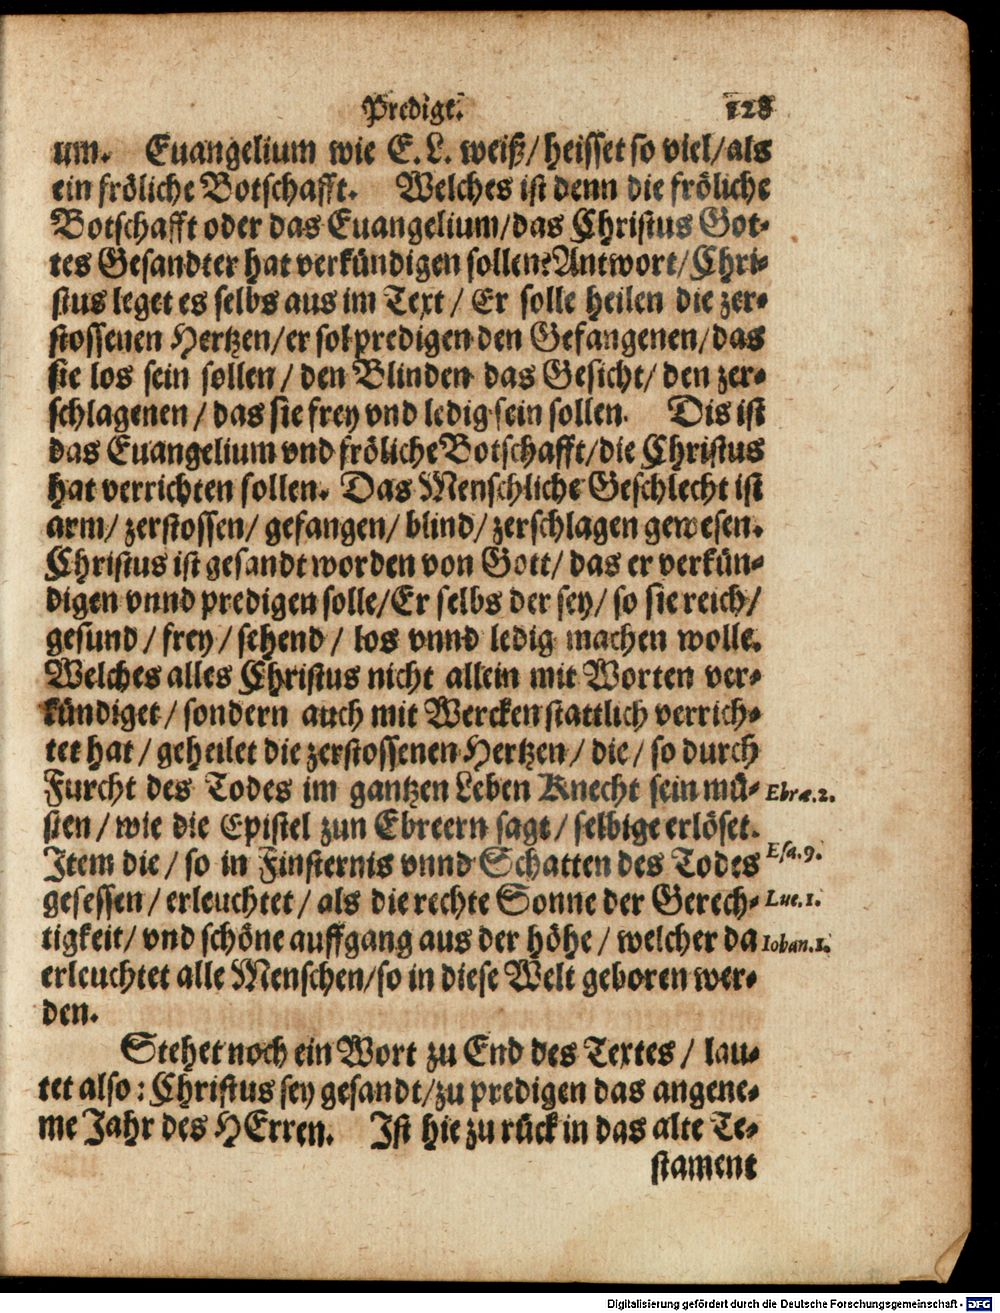 Predigt. 128
um. Euangelium wie E. L. weiß/ heisset so viel/ als
ein fröliche Botschafft. Welches ist denn die fröliche
Botschafft oder das Euangelium/ das Christus Got-
tes Gesandter hat verkündigen sollen? Antwort/ Chri-
stus leget es selbs aus im Text/ Er solle heilen die zer-
stossenen Hertzen/ er sol predigen den Gefangenen/ das
sie los sein sollen/ den Blinden das Gesicht/ den zer-
schlagenen/ das sie frey vnd ledig sein sollen. Dis ist
das Euangelium vnd fröliche Botschafft/ die Christus
hat verrichten sollen. Das Menschliche Geschlecht ist
arm/ zerstossen/ gefangen/ blind/ zerschlagen gewesen.
Christus ist gesandt worden von Gott/ das er verkün-
digen vnnd predigen solle/ Er selbs der sey/ so sie reich/
gesund/ frey/ sehend/ los vnnd ledig machen wolle.
Welches alles Christus nicht allein mit Worten ver-
kündiget/ sondern auch mit Wercken stattlich verrich-
tet hat/ geheilet die zerstossenen Hertzen/ die/ so durch
Furcht des Todes im gantzen Leben Knecht sein mü- Ebræ. 2.
sten/ wie die Epistel zun Ebreern sagt/ selbige erlöset.
Item die/ so in Finsternis vnnd Schatten des Todes Esa. 9.
gesessen/ erleuchtet/ als die rechte Sonne der Gerech- Luc. 1.
tigkeit/ vnd schöne auffgang aus der höhe/ welcher da Iohan. 1.
erleuchtet alle Menschen/ so in diese Welt geboren wer-
den.
Stehet noch ein Wort zu End des Textes/ lau-
tet also: Christus sey gesandt/ zu predigen das angene-
me Jahr des HErren. Ist hie zu rück in das alte Te-
stament
Digitalisierung gefördert durch die Deutsche Forschungsgemeinschaft - DFG